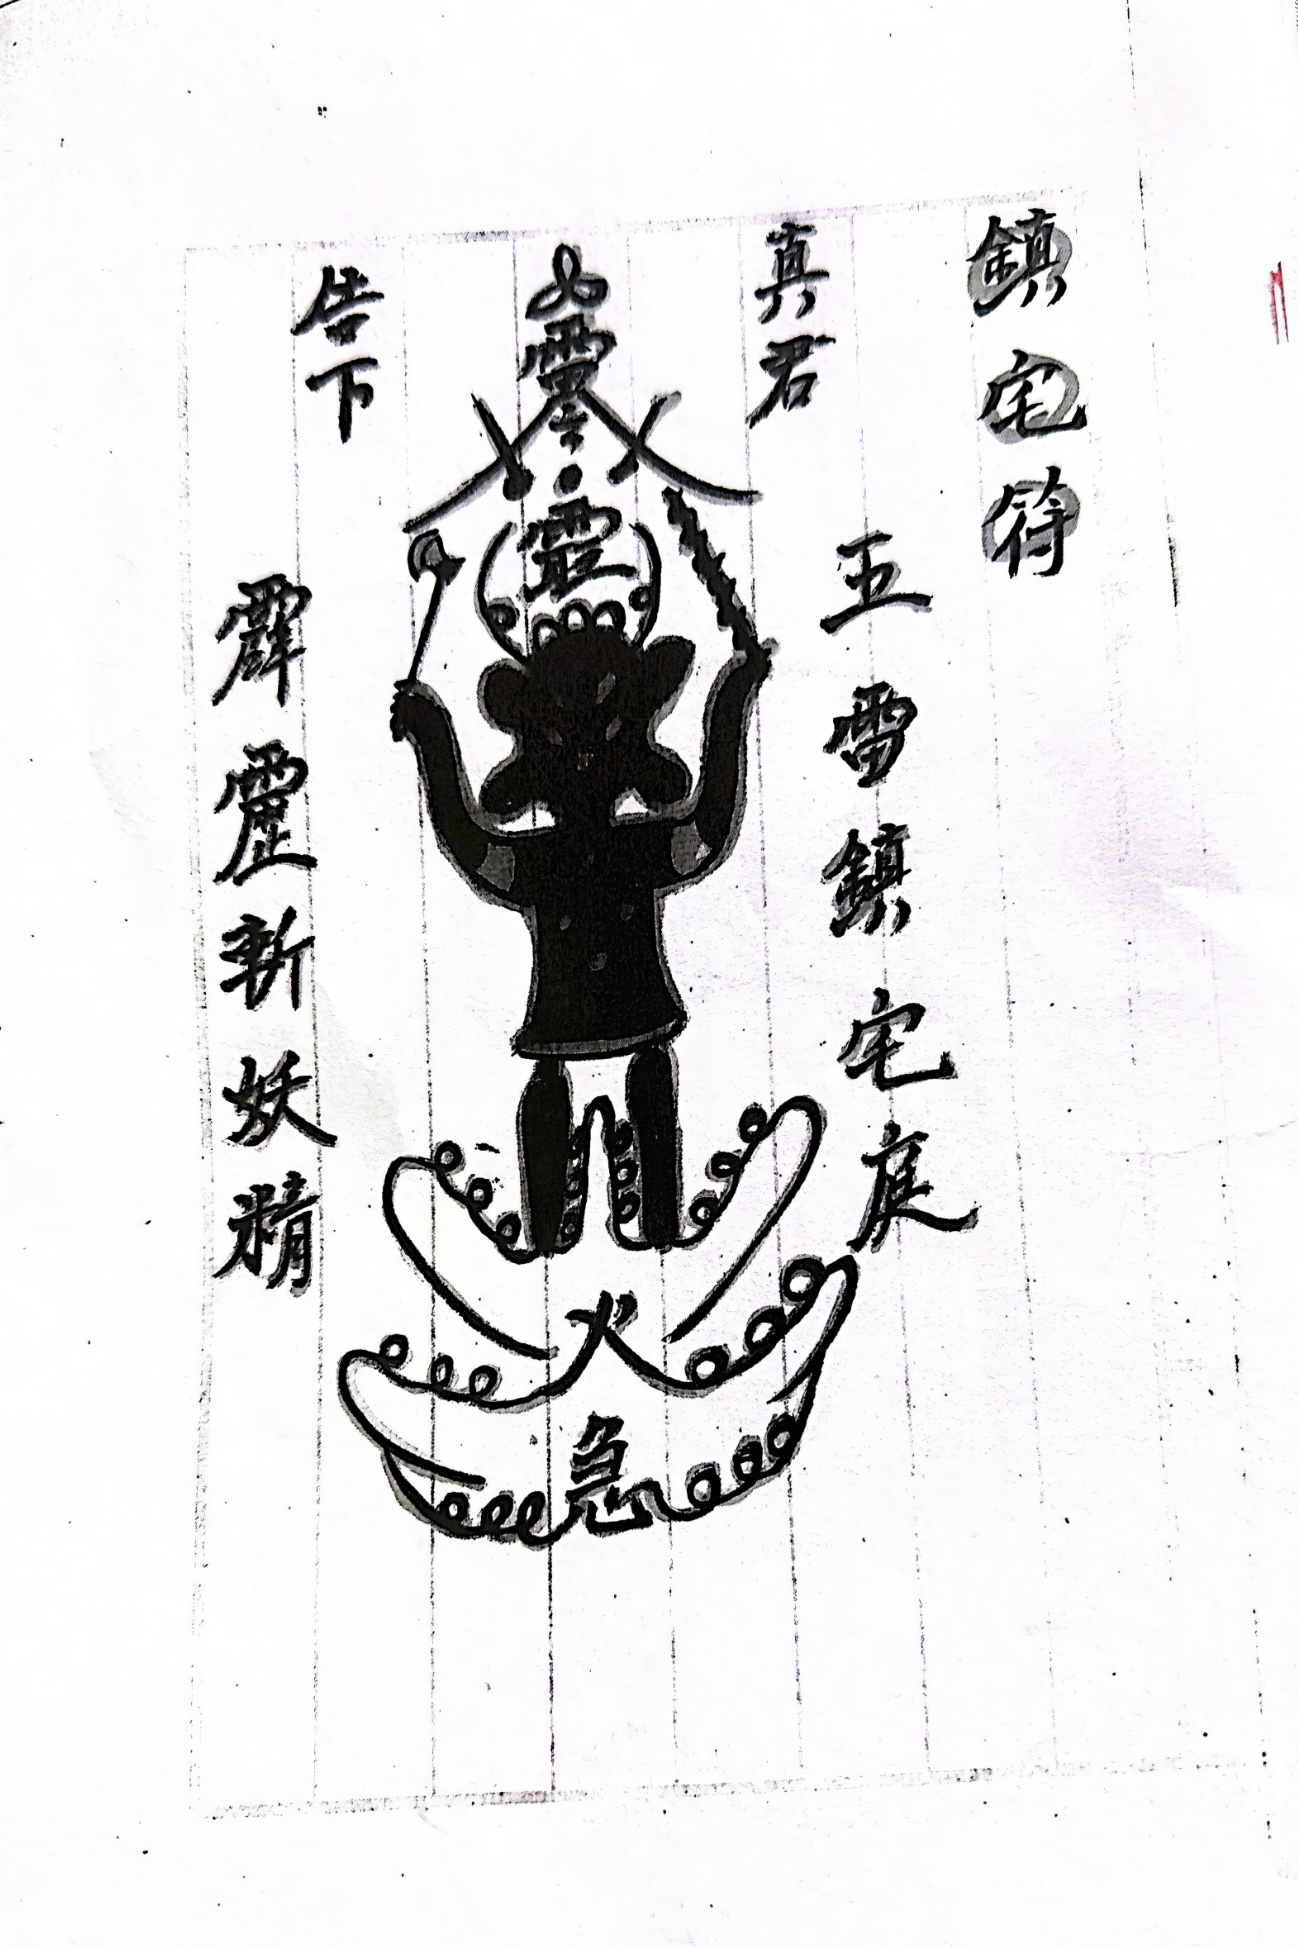 鎮宅符
真君
五雷鎮宅庭
告下
霹靂斬妖精
火
急